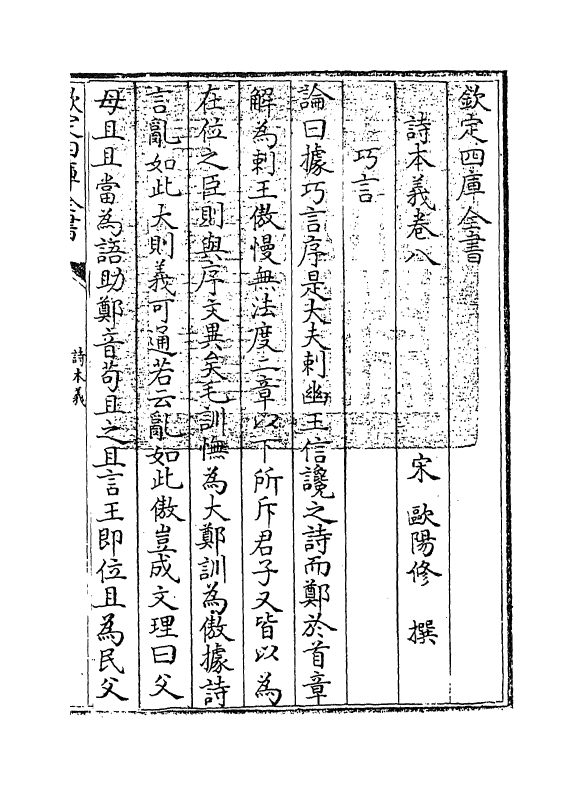 欽定四庫全書
詩本義卷八
宋 歐陽修 撰
巧言
論曰據巧言序是大夫刺幽王信讒之詩而鄭於首章
解為刺王傲慢無法度二章以下所斥君子又皆以為
在位之臣則與序文異矣毛訓憮為大鄭訓為傲據詩
言亂如此大則義可通若云亂如此傲豈成文理曰父
母且且當為語助鄭音苟且之且言王即位且為民父
欽定四庫全書
詩本義